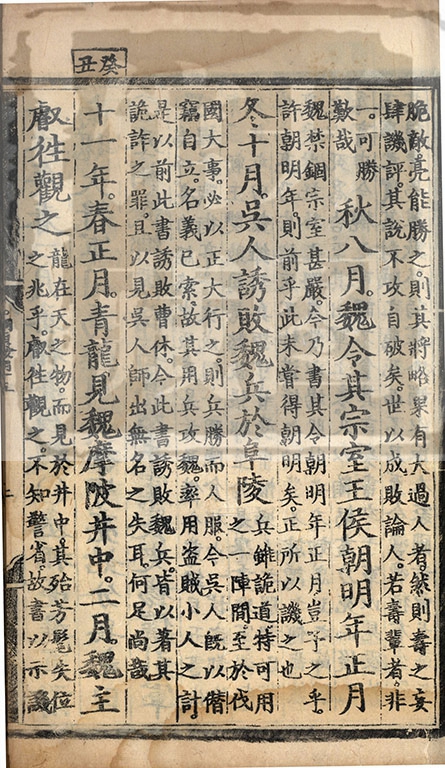 癸丑
脆敵亮能勝之。則其將略果有大過人者。然則壽之妄
肆譏評。其說不攻自破矣。世以成敗論人。若壽輩者。非
一。可勝
歎哉
秋八月。魏令其宗室王侯朝明年正月
魏禁錮宗室甚嚴。今乃書其令朝明年正月。豈予之乎。
許朝明年。則前乎此未嘗得朝明矣。正所以譏之也
冬十月。吳人誘敗魏兵於阜陵
兵雖詭道特可用
之一陣間至於伐
國大事。必以正大行之。則兵勝而人服。今吳人既以僭
竊自立。名義已索。故其用兵攻魏。率用盜賊小人之計。
是以前此書誘敗曹休。今此書誘敗魏兵。皆以著其
詭詐之罪。且以見吳人師出無名之失耳。何足尚哉
十一年。春正月。青龍見魏摩陂井中。二月。魏主
叡往觀之
龍在天之物。而見於井中。其殆芳髦失位
之兆乎。叡往觀之。不知警省。故書以示譏